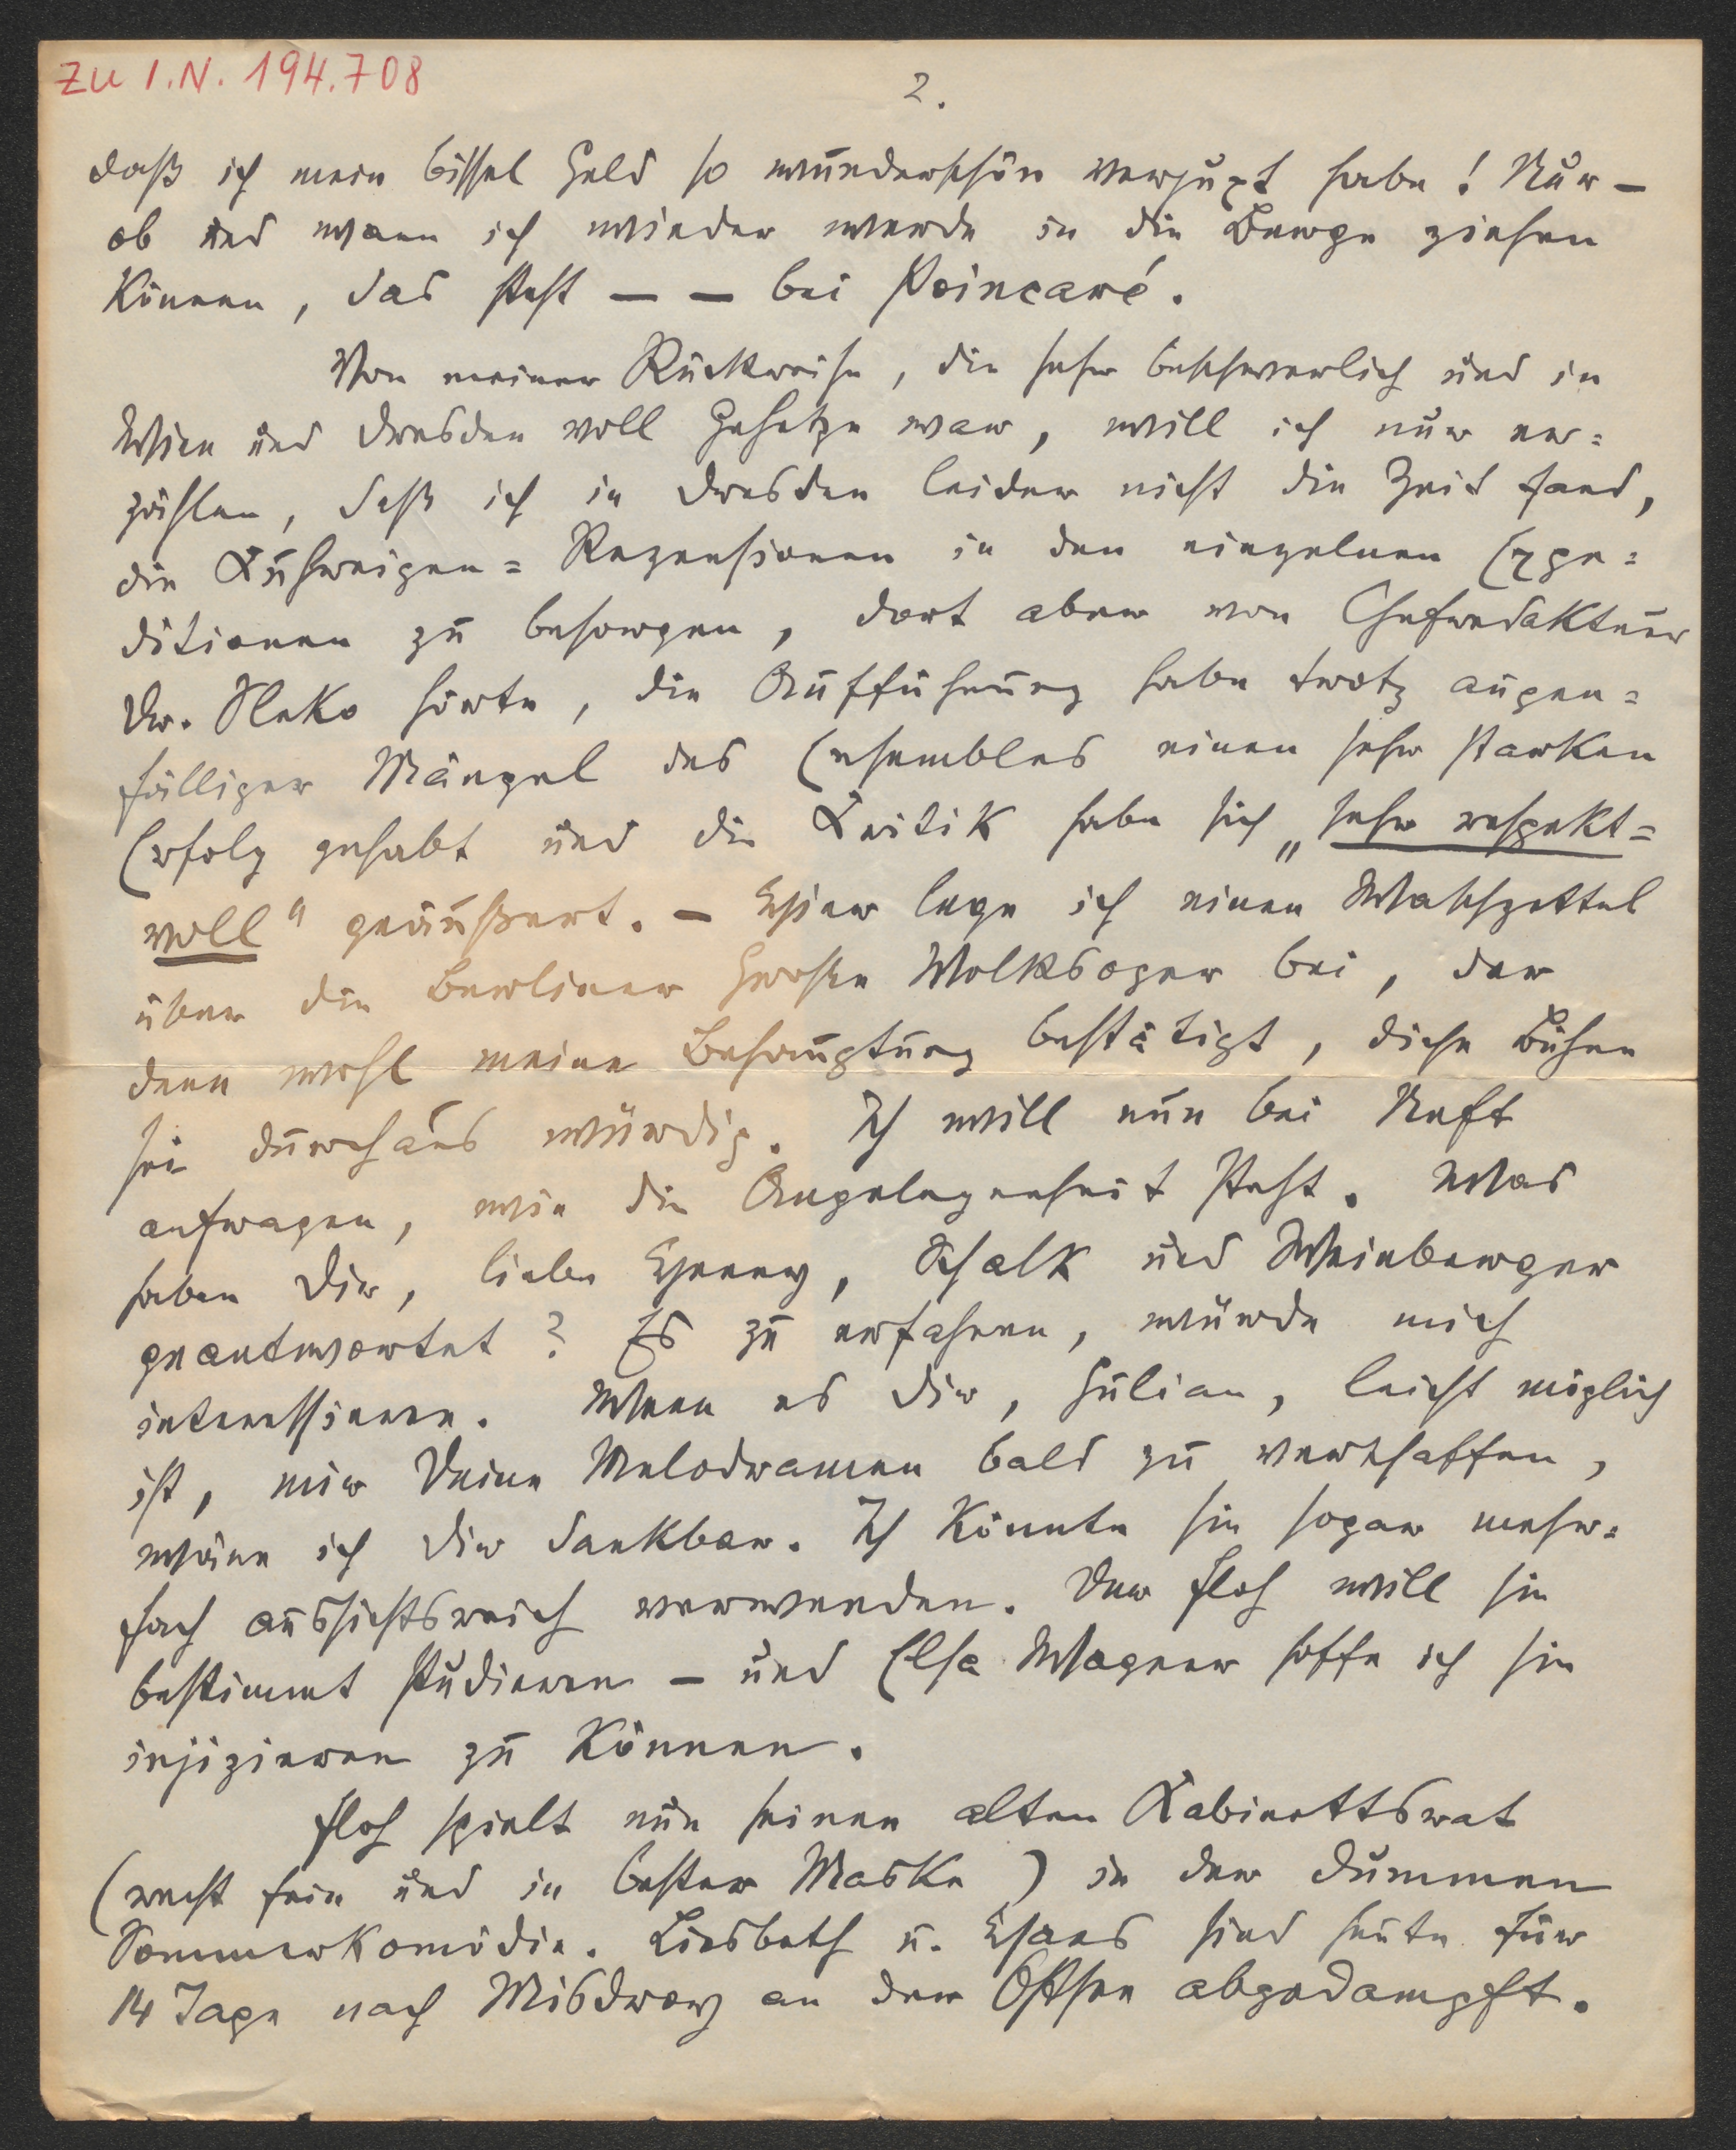 Zu I.N. 194.708
2.
daß ich mein bissel Geld so wunderschön verjuxt habe! Nur –
ob und wann ich wieder werde in die Berge ziehen
können, das steht – – bei Poincaré.
Von meiner Rückreise, die sehr beschwerlich und in
Wien und Dresden voll Gehetze war, will ich nur er=
zählen, daß ich in Dresden leider nicht die Zeit fand,
die Kuhreigen=Rezensionen in den einzelnen Expe=
ditionen zu besorgen, dort aber von Chefredakteur
Dr. hörte, die Aufführung habe trotz augen=
fälliger Mängel des Ensembles einen sehr starken
Erfolg gehabt und die Kritik habe sich „sehr respekt=
voll" geäußert. – Hier lege ich einen Waschzettel
über die Berliner Große Volksoper bei, der
denn wohl meine Behauptung bestätigt, diese Bühne
sei durchaus würdig. Ich will nun bei Neft
anfragen, wie die Angelegenheit steht. Was
haben Dir, lieber Henny, Schalk und Weinberger
geantwortet? Es zu erfahren, würde mich
interessieren. Wenn es Dir, Julian, leicht möglich
ist, mir Deine Melodramen bald zu verschaffen,
wäre ich Dir dankbar. Ich könnte sie sogar mehr=
fach aussichtsreich verwenden. Der Floh will sie
bestimmt studieren – und Elsa Wagner hoffe ich sie
injizieren zu können.
Floh spielt nun seinen alten Kabinettsrat
(recht fein und in bester Maske) in der dummen
Sommerkomödie. Liesbeth u. Hans sind heute für
14 Tage nach Misdroy an der Ostsee abgedampft.